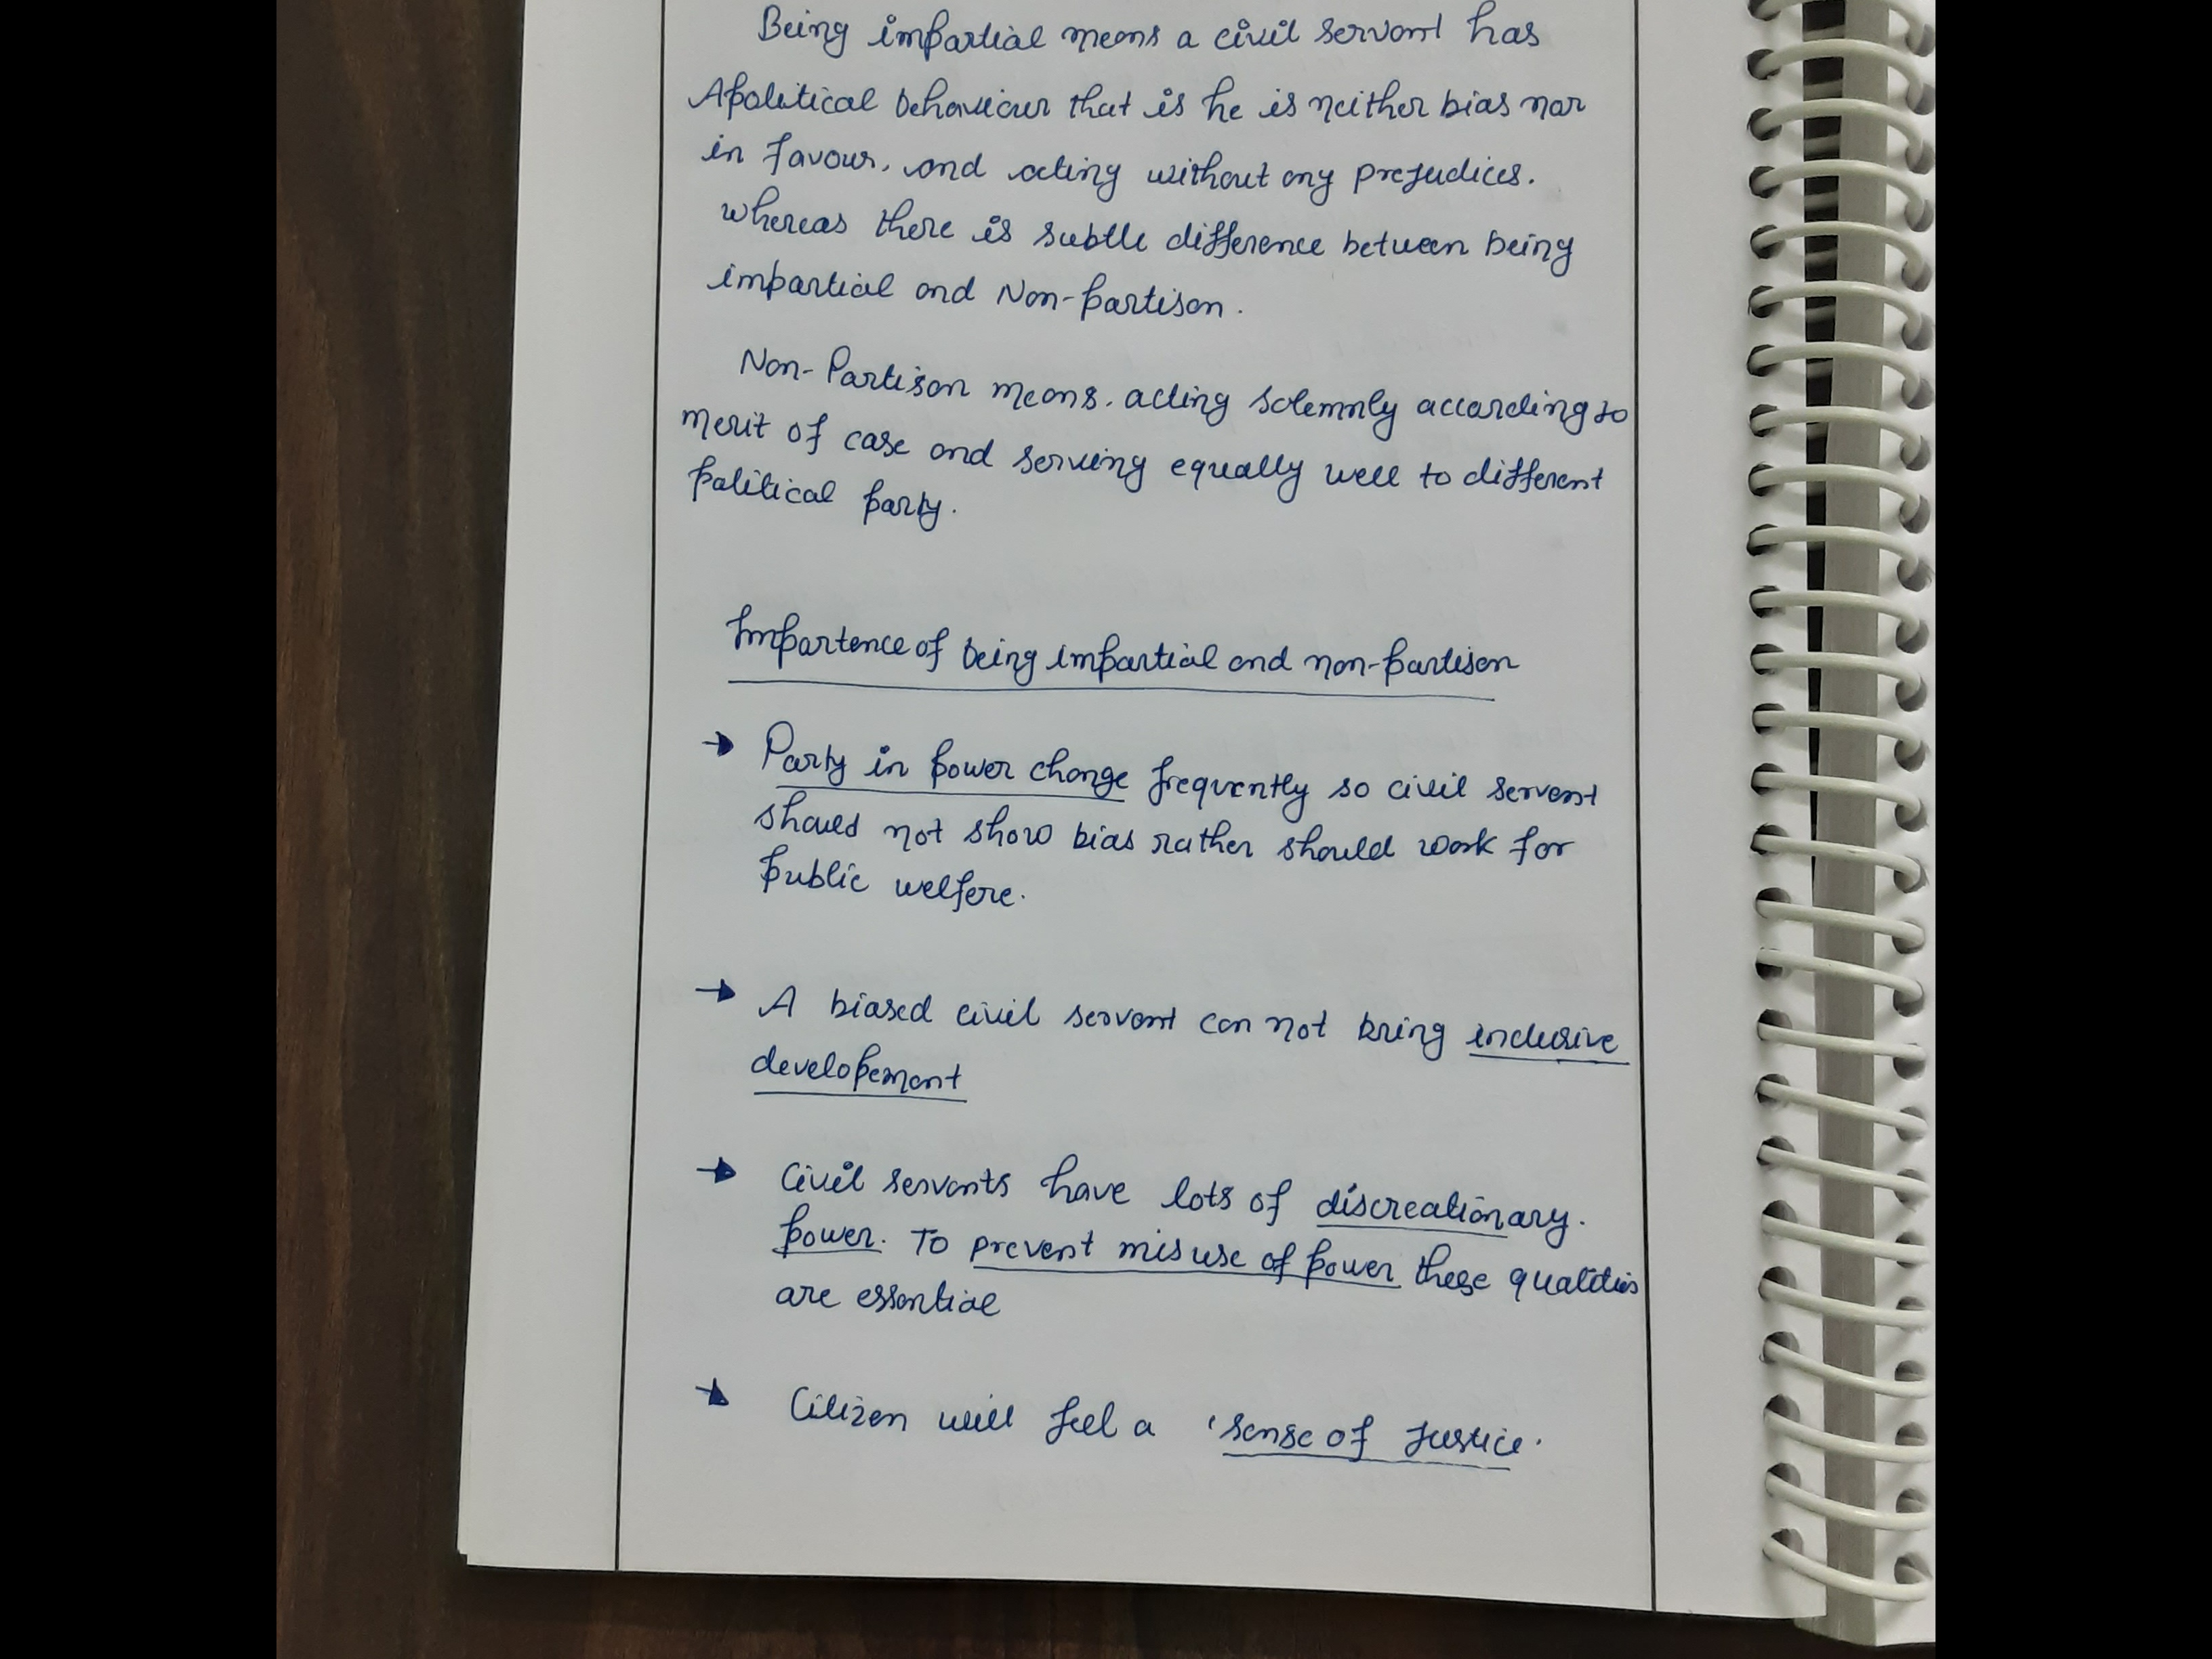 Being impartial means a civil servant has
Apolitical behaviour that is he is neither bias nor
in favour, and acting without any prejudices.
whereas there is subtle difference between being
impartial and Non-partison.
Non-Partison means, acting solemnly according to
merit of case and serving equally well to different
political party.
Importence of being impartial and non-partison
→ Party in power change frequently so civil servant
should not show bias rather should work for
public welfere.
→ A biased civil servant can not bring inclusive
developement
→ Civil servants have lots of discreationary.
power. To prevent misuse of power these qualities
are essential
→ Citizen will feel a 'sense of Justice.